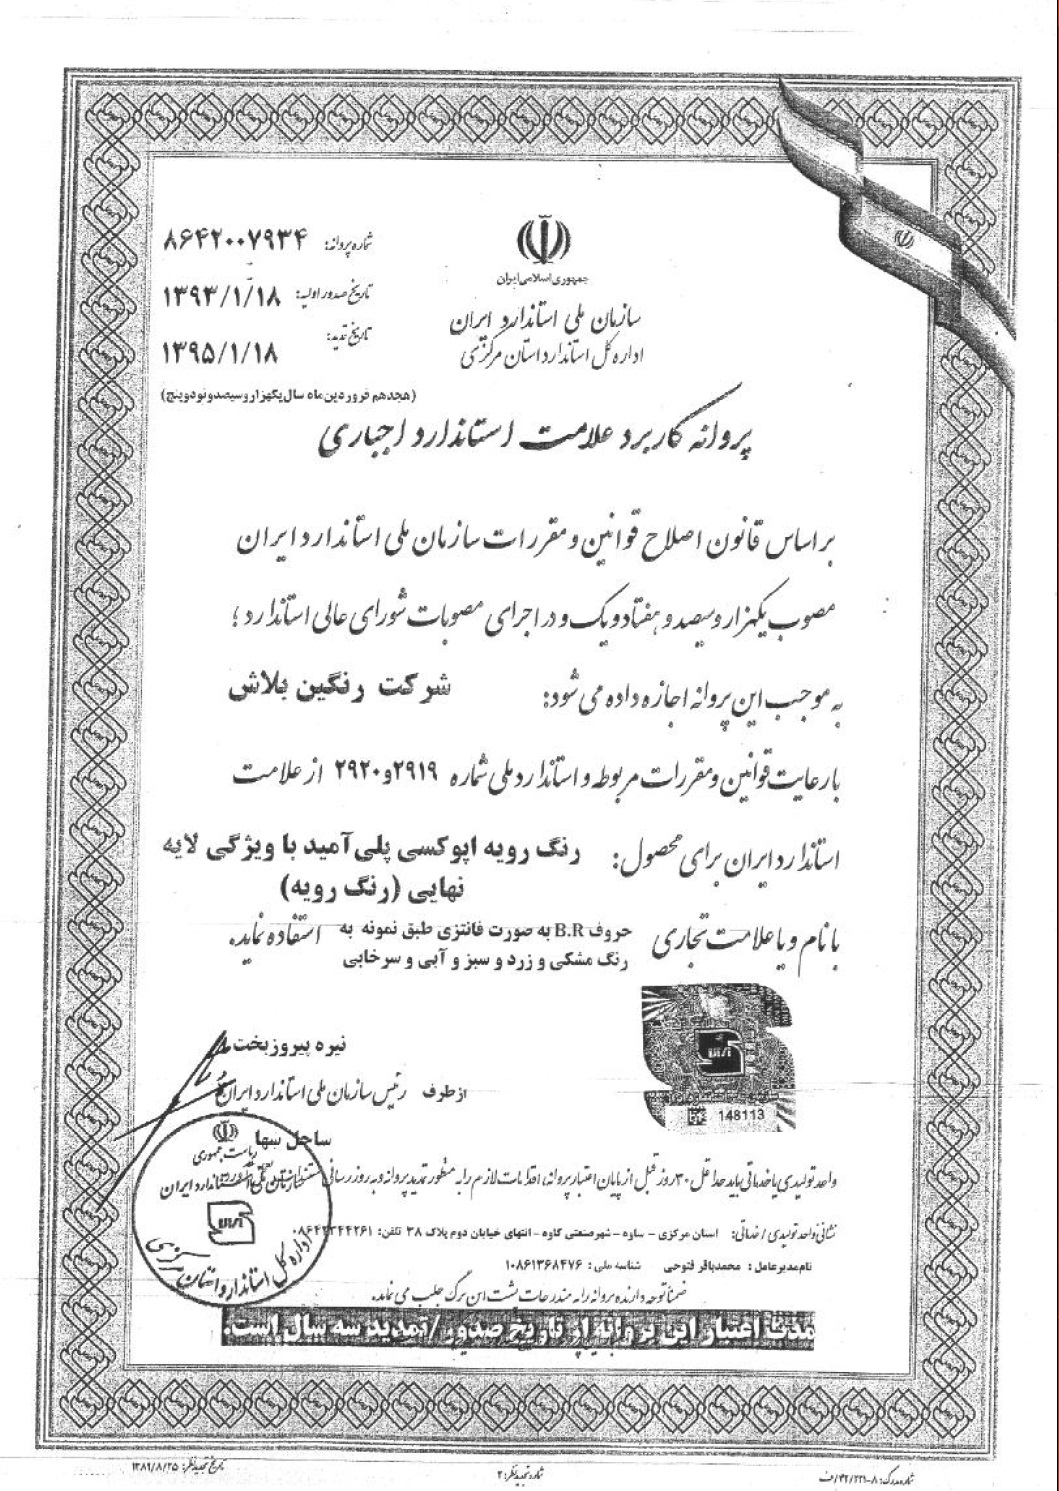 جمهوری اسلامی ایران
سازمان ملی استاندارد ایران
اداره کل استاندارد استان مرکزی
شماره پروانه: ۸۶۴۲۰۰۷۹۳۴
تاریخ صدور اولیه: ۱۳۹۳/۱/۱۸
تاریخ تمدید: ۱۳۹۵/۱/۱۸
(هجدهم فروردین ماه سال یکهزار و سیصد و نود و پنج)
پروانه کاربرد علامت استاندارد اجباری
بر اساس قانون اصلاح قوانین و مقررات سازمان ملی استاندارد ایران
مصوب یکهزار و سیصد و هفتاد و یک و در اجرای مصوبات شورای عالی استاندارد ؛
به موجب این پروانه اجازه داده می شود: شرکت رنگین بلاش
با رعایت قوانین و مقررات مربوطه و استاندارد ملی شماره ۲۹۱۹و۲۹۲۰ از علامت
استاندارد ایران برای محصول: رنگ رویه اپوکسی پلی آمید با ویژگی لایه
نهایی (رنگ رویه)
با نام و یا علامت تجاری حروف B.R به صورت فانتزی طبق نمونه به استفاده نماید.
رنگ مشکی و زرد و سبز و آبی و سرخابی
نیره پیروزبخت
از طرف رئیس سازمان ملی استاندارد ایران
148113
ساحل سها
ریاست جمهوری
سازمان ملی استاندارد ایران
اداره کل استاندارد استان مرکزی
واحد تولیدی یا خدماتی باید حداقل ۳۰ روز قبل از پایان اعتبار پروانه، اقدامات لازم را به منظور تمدید پروانه و به روز رسانی
نشانی واحد تولیدی / خدماتی: استان مرکزی - ساوه - شهرصنعتی کاوه - انتهای خیابان دوم پلاک ۳۸ تلفن: ۰۸۶۴۲۳۴۴۲۶۱
نام مدیرعامل : محمدباقر فتوحی شناسه ملی : ۱۰۸۶۱۳۶۸۴۷۶
ضمناً توجه دارنده پروانه را به مندرجات پشت این برگ جلب می نماید.
مدت اعتبار این پروانه از تاریخ صدور/تمدید سه سال است.
شماره مدرک: ف/۴۲/۲۲۱-۰۸
شماره تجدیدنظر: ۲
تاریخ تجدیدنظر: ۱۳۸۹/۸/۲۵